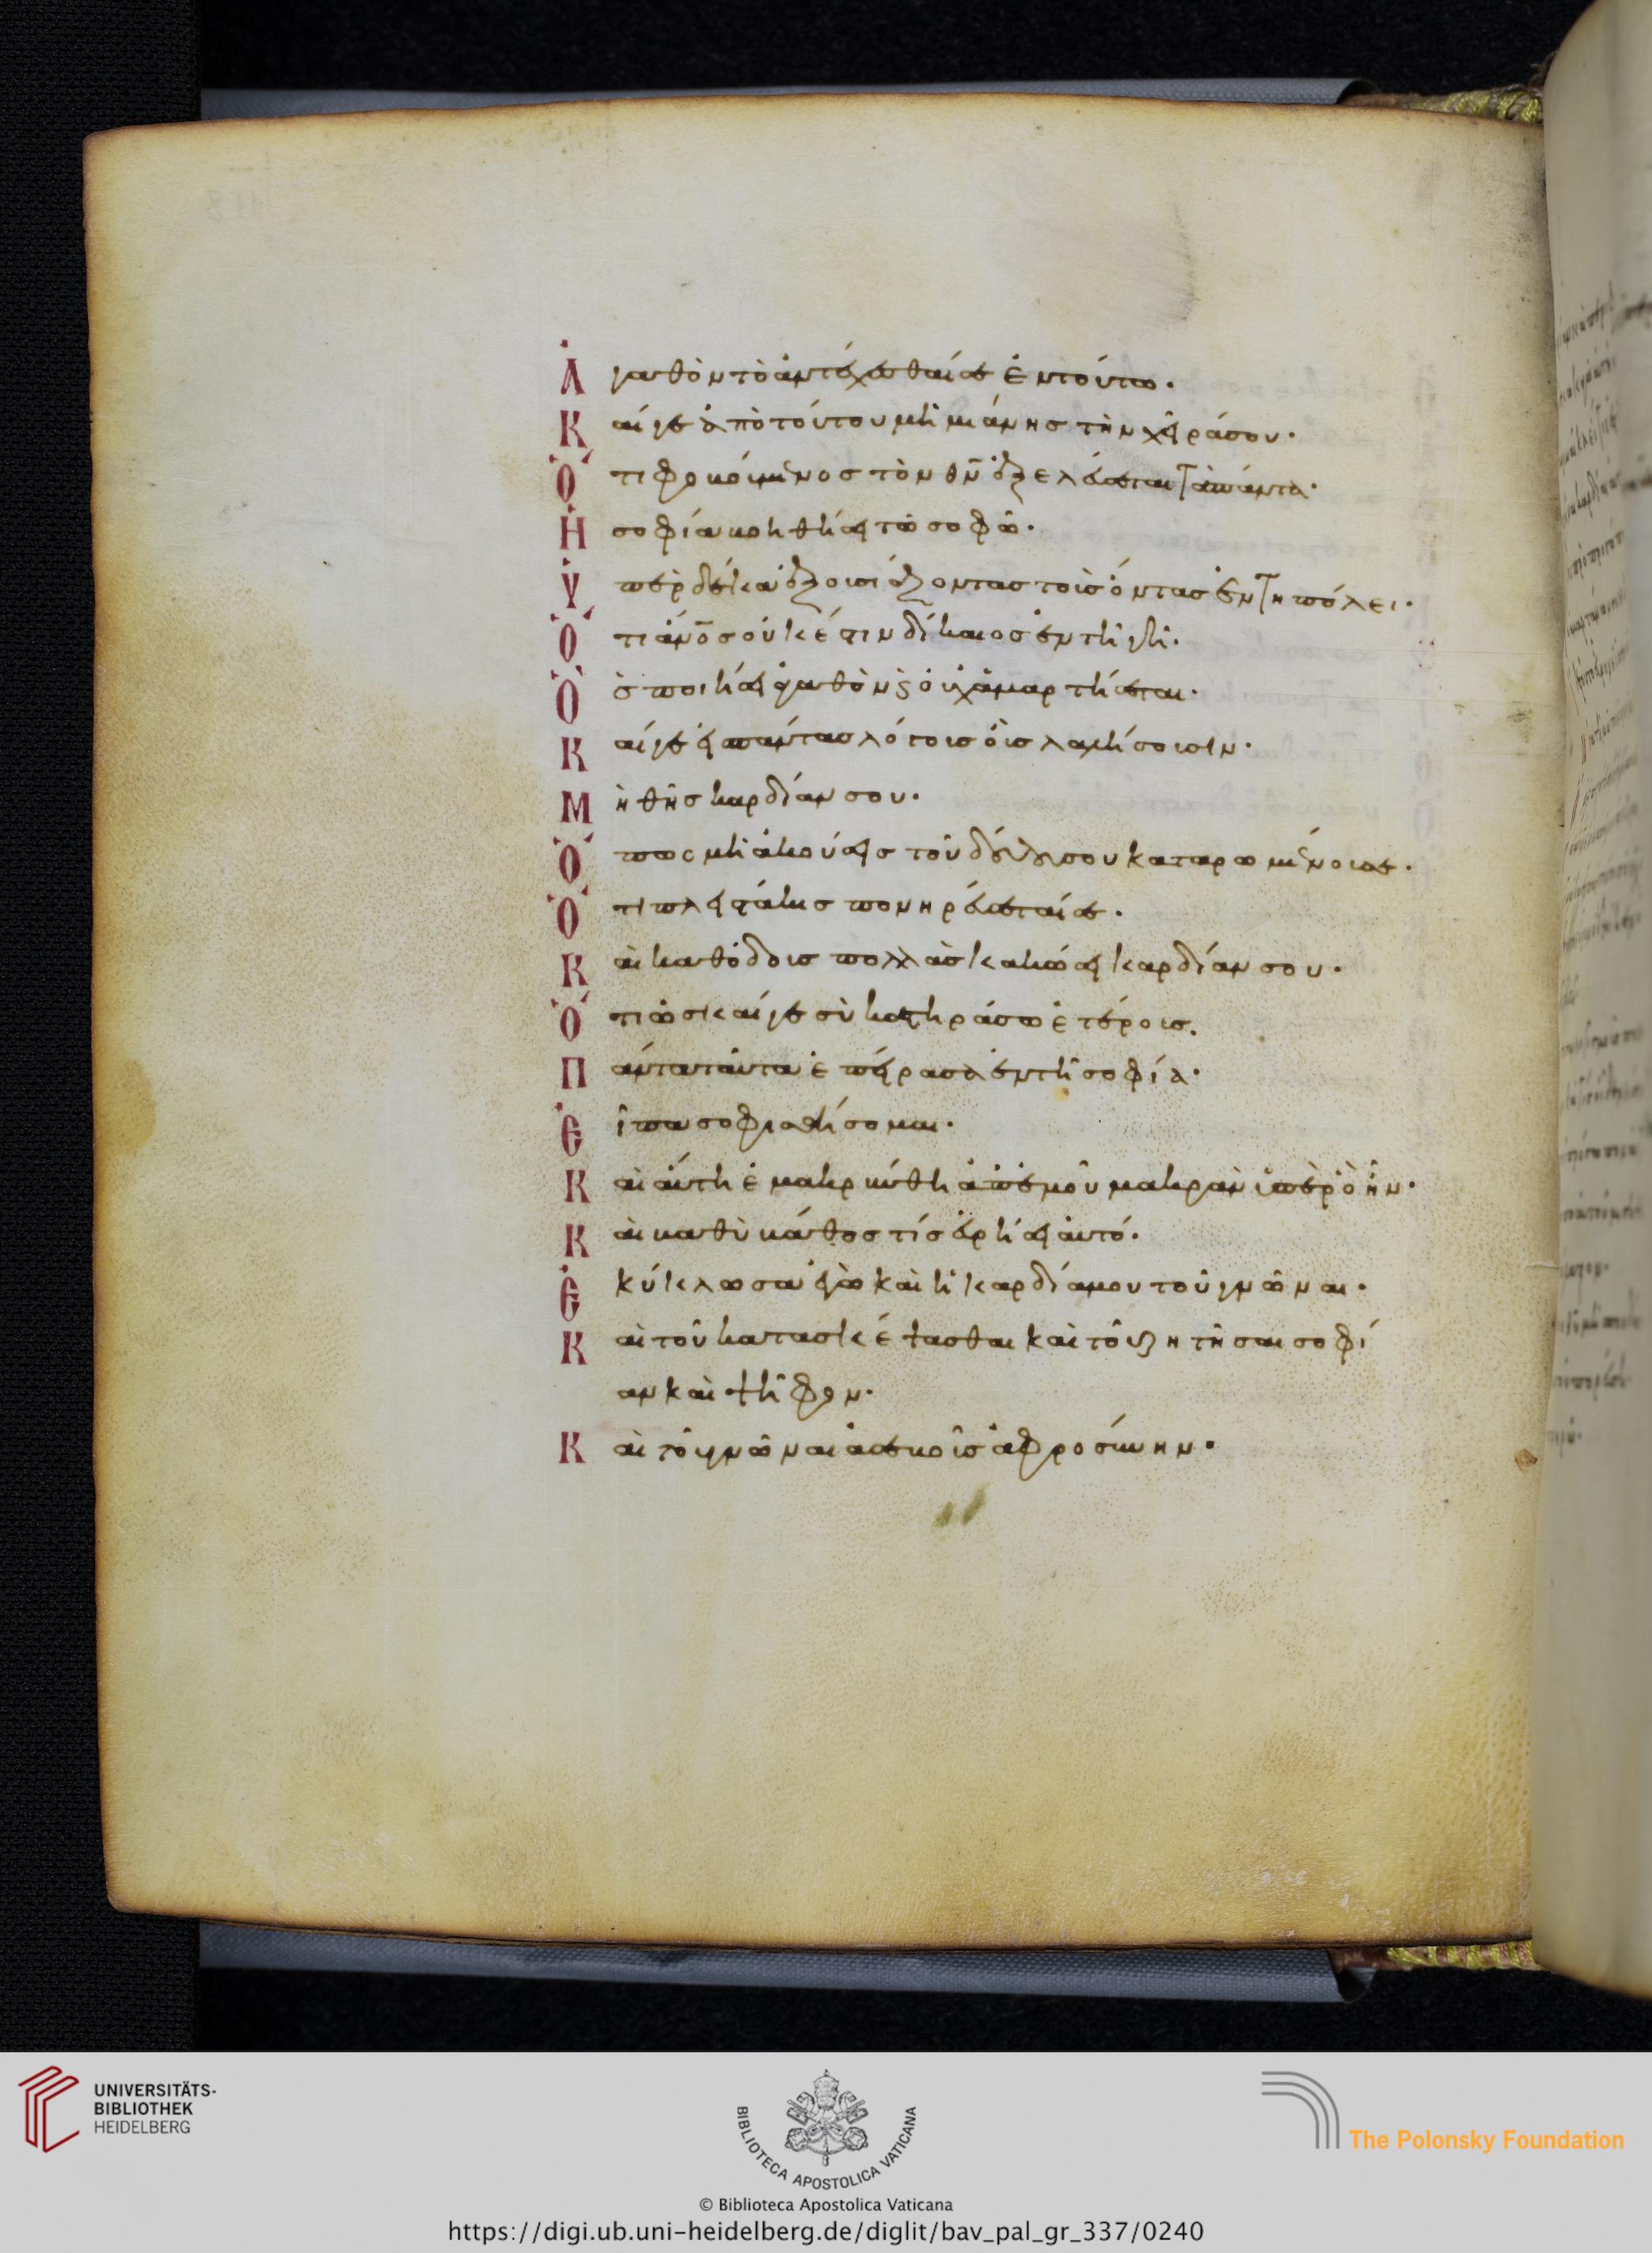 Ἀγαθὸν τὸ ἀντέχεσθαί σε ἐν τούτω·
Καίγε ἀπὸ τούτου μὴ μιάνης τὴν χεῖρά σου·
Ὅτι φοβούμενος τὸν θν ἐξελεύσεται τὰ πάντα·
Ἡ σοφία βοηθήσει τῶ σοφῶ·
Ὑπὲρ δέκα ἐξουσιάζοντας τοὺς ὄντας ἐν τῆ πόλει·
Ὅτι ἄνος οὐκ ἔστιν δίκαιος ἐν τῆ γῆ·
Ὃς ποιήσει ἀγαθὸν ϗ οὐχ ἁμαρτήσεται·
Καίγε εἰς πάντας λόγους οὓς λαλήσουσιν·
Μὴ θῆς καρδίαν σου·
Ὅπως μὴ ἀκούσεις τοῦ δούλου σου καταρωμένου σε·
Ὅτι πλειστάκις πονηρεύσεταί σε·
Καὶ καθόδους πολλὰς κακώσει καρδίαν σου·
Ὅτι ὡς καίγε σὺ κατηράσω ἑτέρους.
Πάντα ταῦτα ἐπείρασα ἐν τῆ σοφία·
Εἶπα σοφισθήσομαι·
Καὶ αὕτη ἐμακρύνθη ἀπ' ἐμοῦ μακρὰν ὑπὲρ ὃ ἦν·
Καὶ βαθὺ βάθος τίς εὑρήσει αὐτό·
Ἐκύκλωσα ἐγὼ καὶ ἡ καρδία μου τοῦ γνῶναι·
Καὶ τοῦ κατασκέψασθαι καὶ τοῦ ζητῆσαι σοφί
αν καὶ ψῆφον·
Καὶ τοῦ γνῶναι ἀσεβοῦς ἀφροσύνην·
UNIVERSITÄTS-
BIBLIOTHEK
HEIDELBERG
BIBLIOTECA APOSTOLICA VATICANA
The Polonsky Foundation
© Biblioteca Apostolica Vaticana
https://digi.ub.uni-heidelberg.de/diglit/bav_pal_gr_337/0240